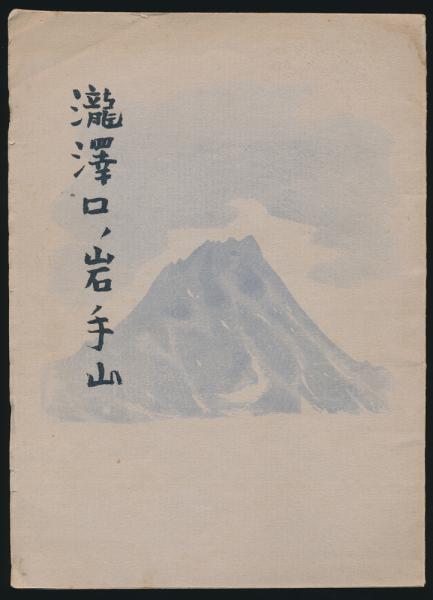 瀧澤口ノ岩手山